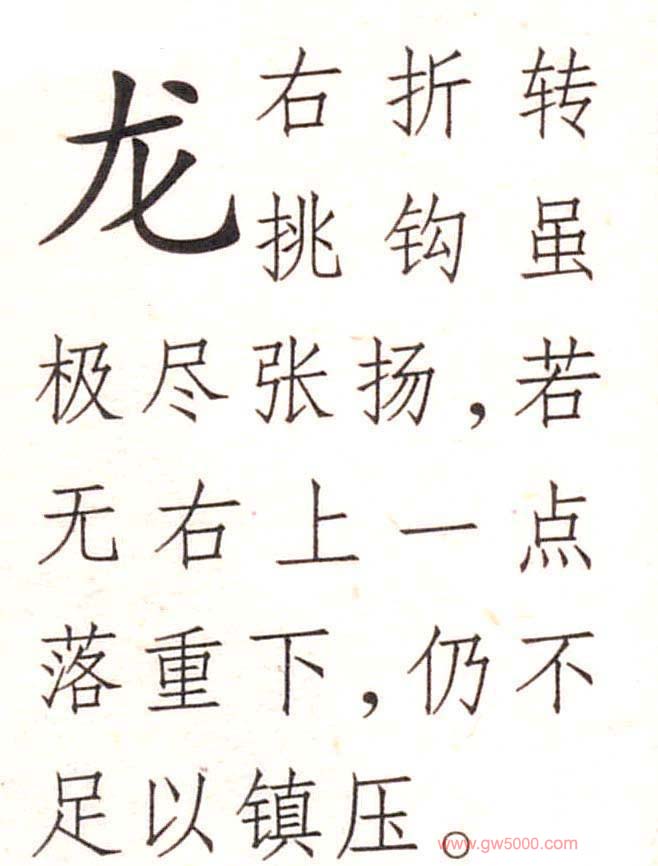 龙
右折转
挑钩虽
极尽张扬,若
无右上一点
落重下,仍不
足以镇压。
www.gw5000.com